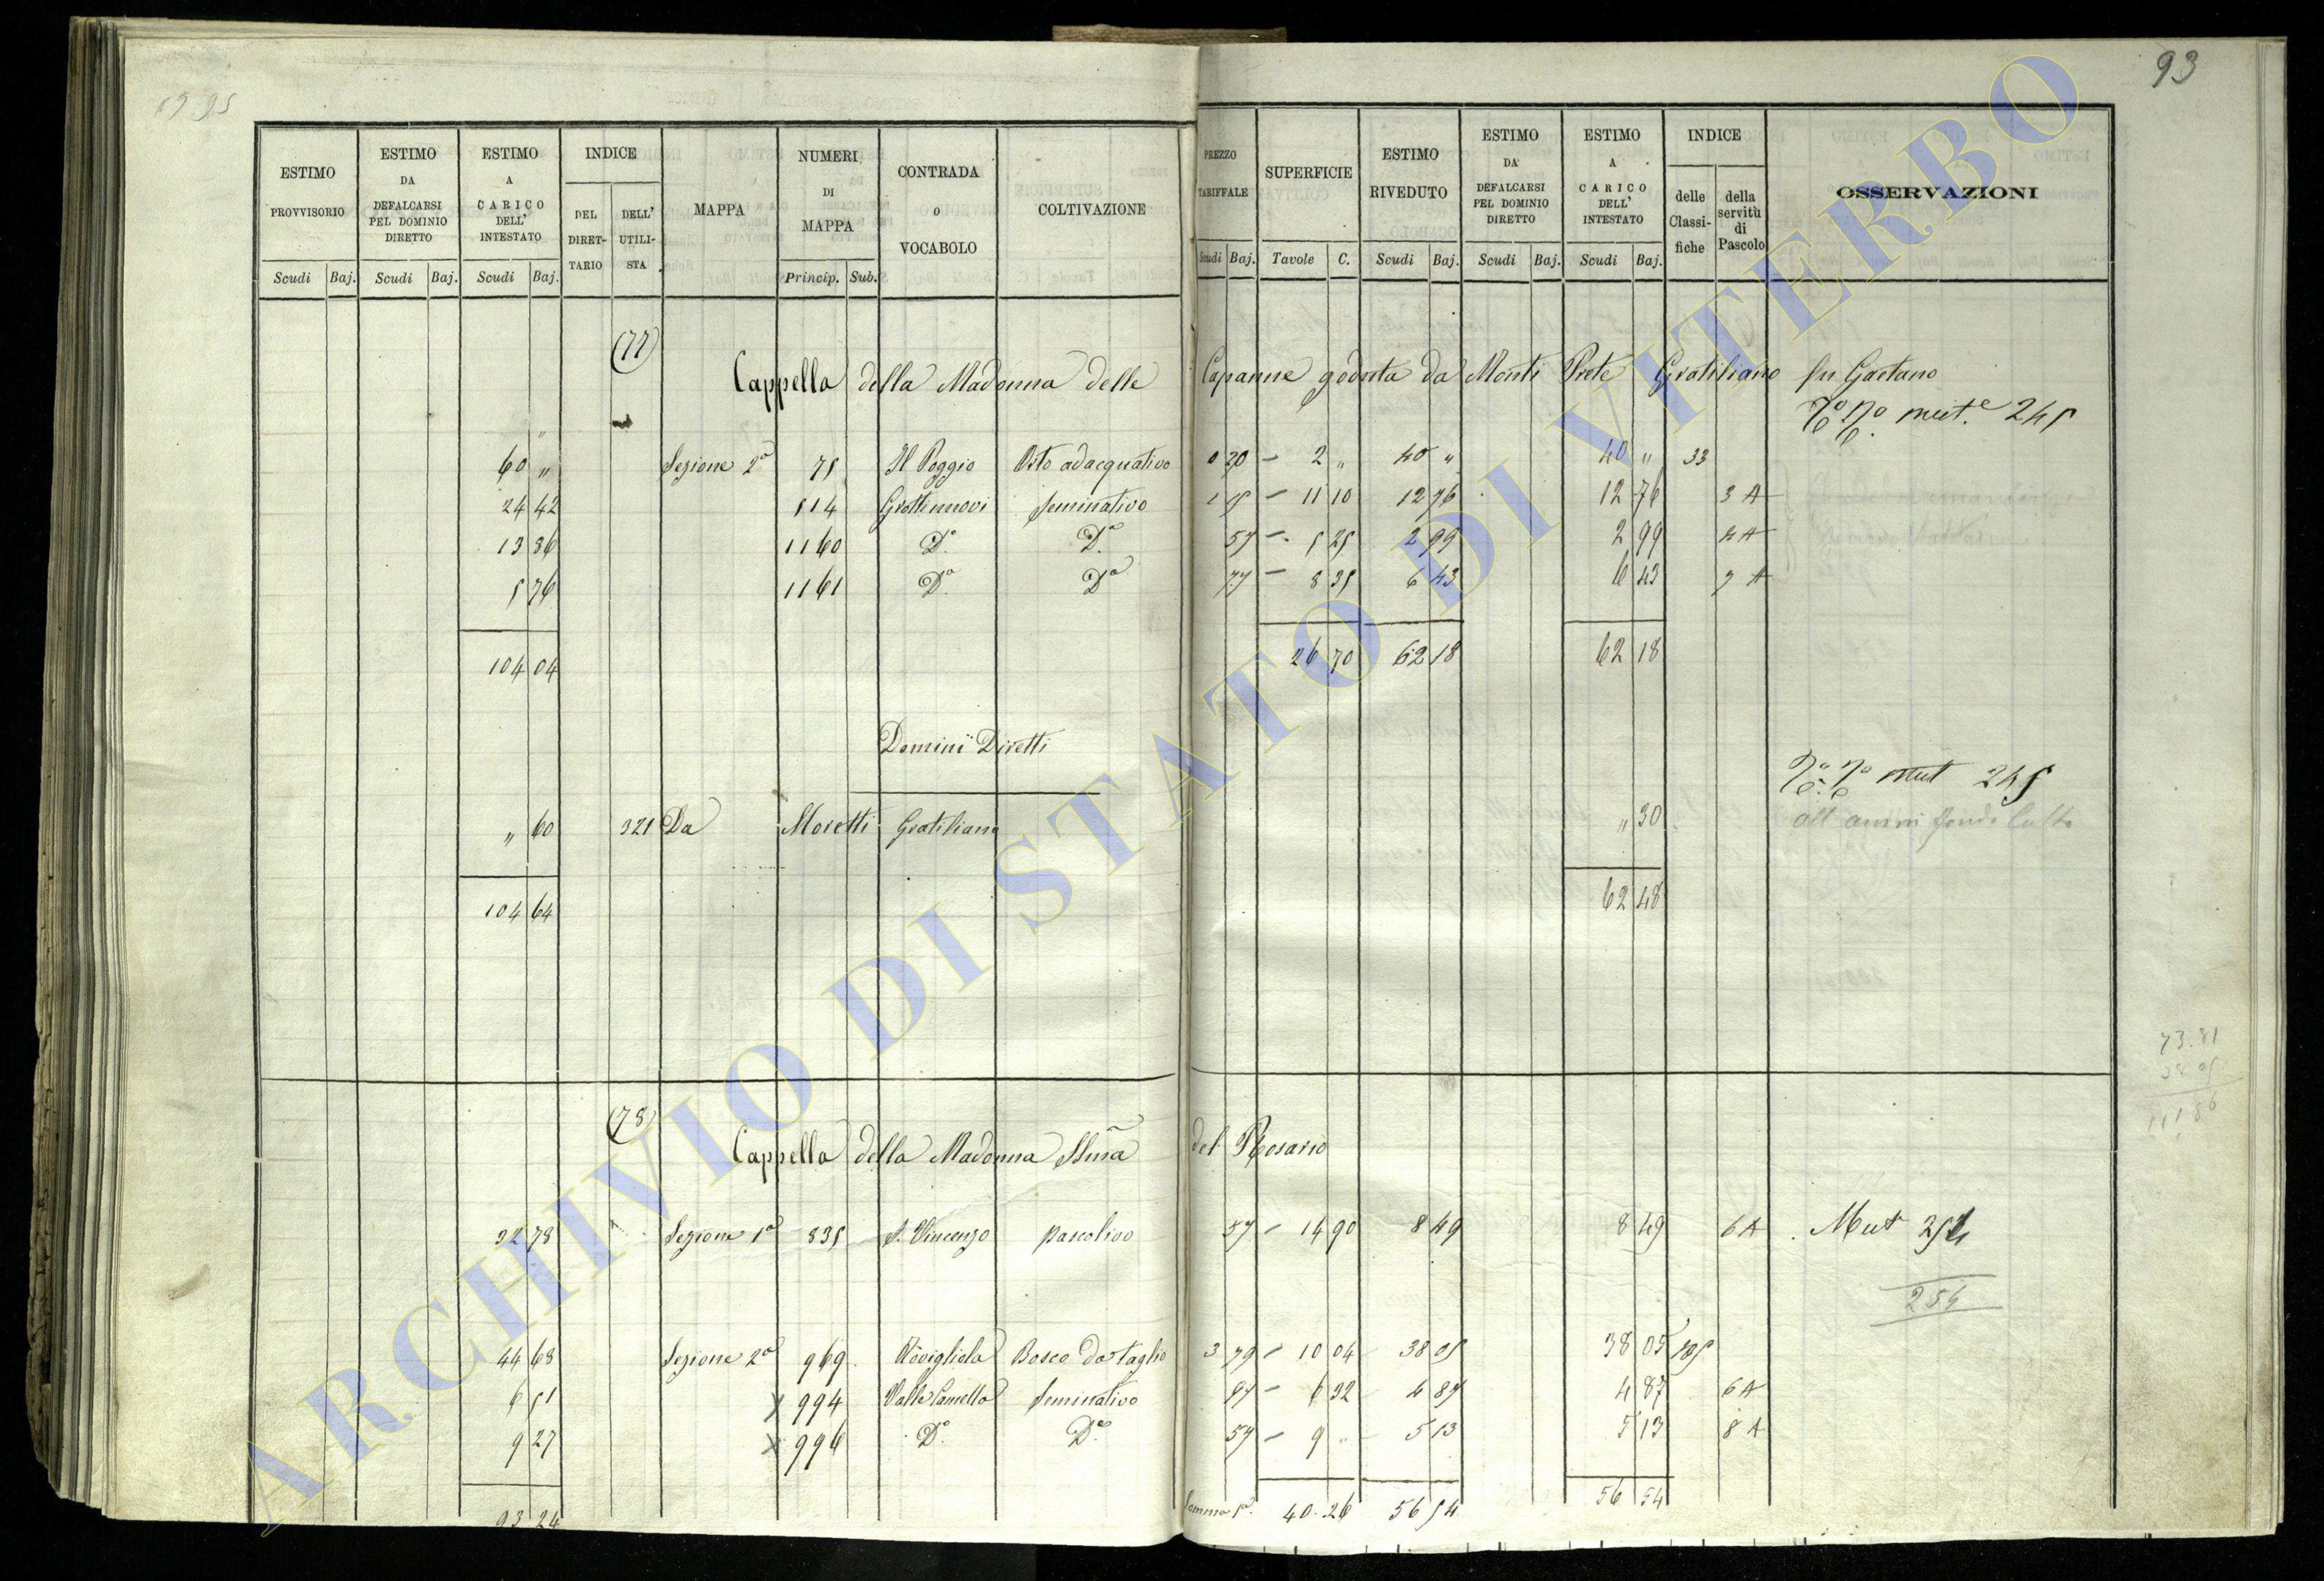 93
ESTIMO PROVVISORIO Scudi Baj.
ESTIMO DA DEFALCARSI PEL DOMINIO DIRETTO Scudi Baj.
ESTIMO A CARICO DELL' INTESTATO Scudi Baj.
INDICE DEL DIRETTARIO DELL' UTILISTA
MAPPA
NUMERI DI MAPPA Princip. Sub.
CONTRADA O VOCABOLO
COLTIVAZIONE
PREZZO TARIFFALE Scudi Baj.
SUPERFICIE Tavole C.
ESTIMO RIVEDUTO Scudi Baj.
ESTIMO DA DEFALCARSI PEL DOMINIO DIRETTO Scudi Baj.
ESTIMO A CARICO DELL' INTESTATO Scudi Baj.
INDICE delle Classifiche della servitù di Pascolo
OSSERVAZIONI
(77)
Cappella della Madonna delle Capanne goduta da Monti Prete Gratiliano fu Gaetano
mut.e 245
60 " Sezione 2a 75 Il Poggio Orto adacquativo 2 " 40 " 40 " 33
24 42 514 Grottinnovi Seminativo 11 10 12 76 12 76 3 A
13 36 1160 Do. Do. 57 5 25 2 99 2 99 4 A
5 76 1161 Do. Do. 77 8 35 6 43 6 43 7 A
104 04 26 70 62 18 62 18
Dominii Diretti
mut 245
" 60 321 Da Moretti Gratiliano " 30
104 64 62 48
73.81
38 05
111.86
(78)
Cappella della Madonna SSma del Rosario
32 78 Sezione 1a 835 S. Vincenzo pascolivo 57 14 90 8 49 8 49 6 A Mut 254
254
44 68 Sezione 2a 969 Rovigliola Bosco da taglio 3 79 10 04 38 05 38 05 105
6 51 X 994 Valle Camella Seminativo 6 32 4 87 4 87 6 A
9 27 X 996 Do. Do. 57 9 " 5 13 5 13 8 A
93 24 Somma 1a. 40.26 56 54 56 54
ARCHIVIO DI STATO DI VITERBO